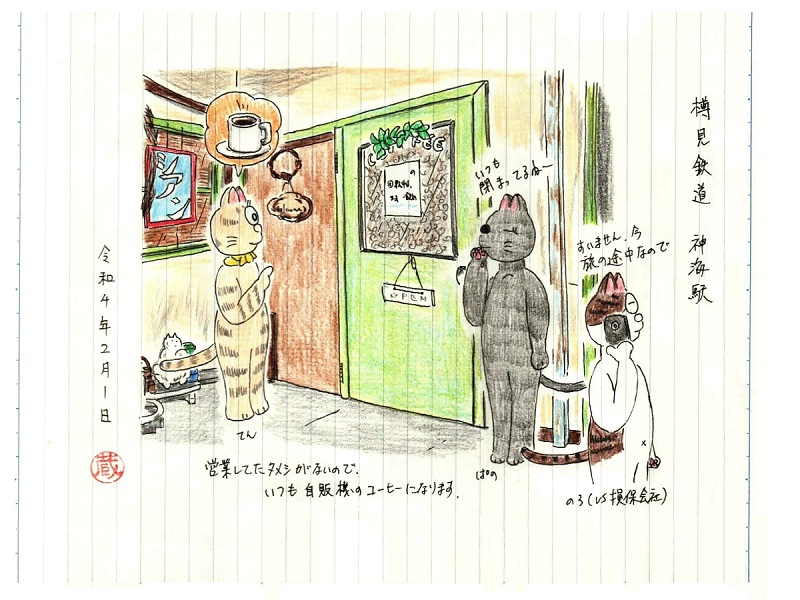 樽見鉄道 神海駅
すいません、今
旅の途中なので
いつも
閉まってるねー
C FEE
の
OPEN
シアン
てん
ぱの
のろ(VS損保会社)
営業してたタメシがないので、
いつも自販機のコーヒーになります。
令和4年2月1日
蔵